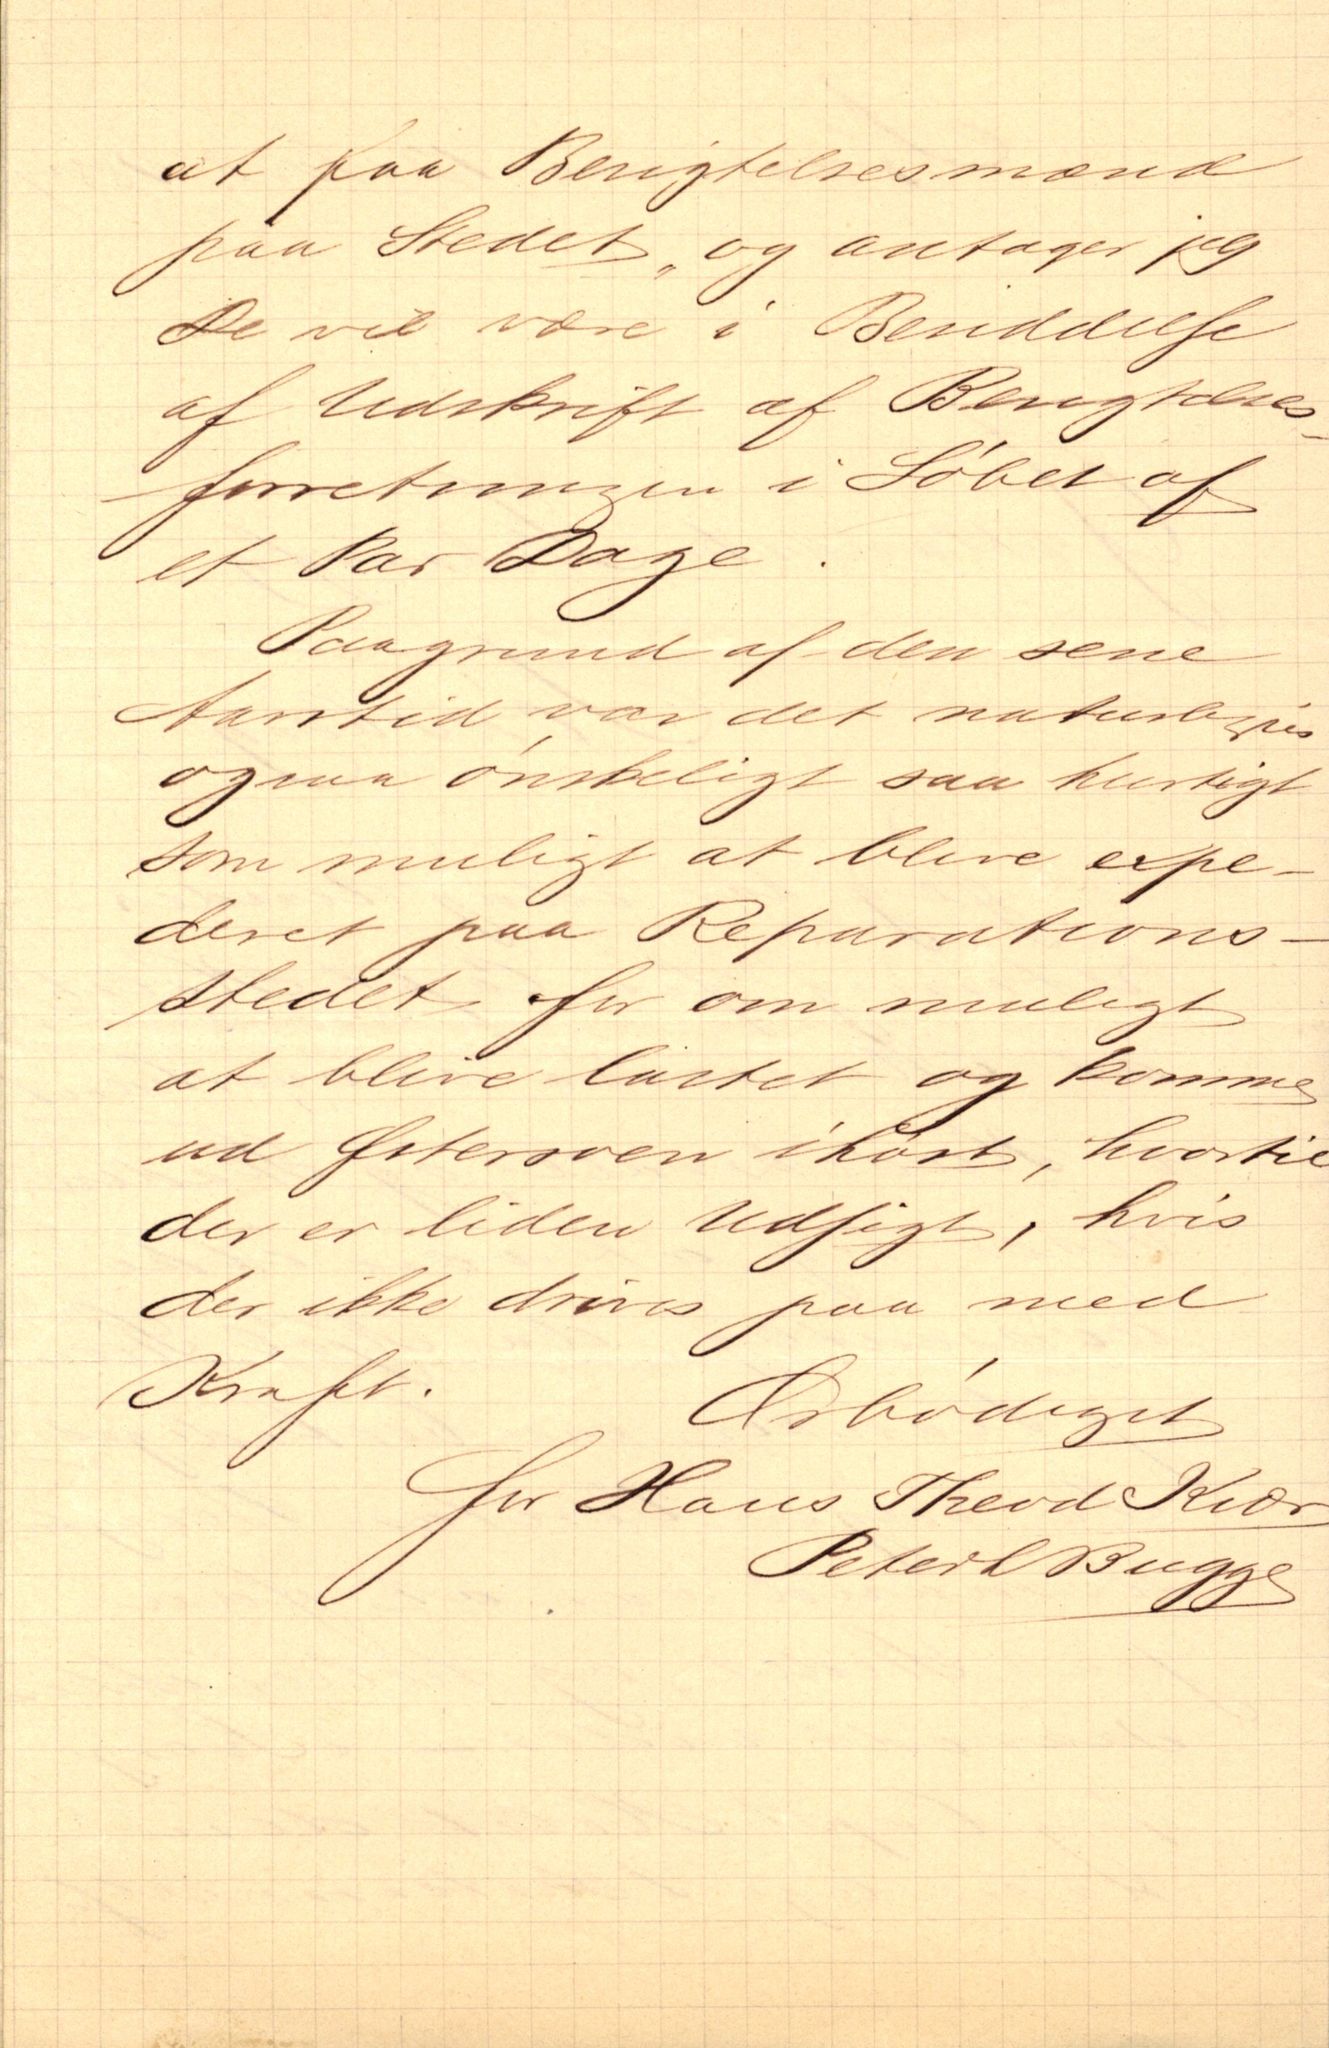 at faa Besigtelsesmænd
paa Stedet, og antager jeg
De vil være i Besiddelse
af Udskrift af Besigtelses-
forretningen i Løbet af
et Par Dage.
Paagrund af den sene
Aarstid var det naturligvis
ogsaa ønskeligt saa hurtigt
som muligt at blive expe-
deret paa Reparations-
stedet for om muligt
at blive lastet og komme
ud Østersøen ihøst, hvortil
der er liden Udsigt, hvis
der ikke drives paa med
Kraft.
Ærbødigst
for Hans Theod Kiær
Peter Bugge